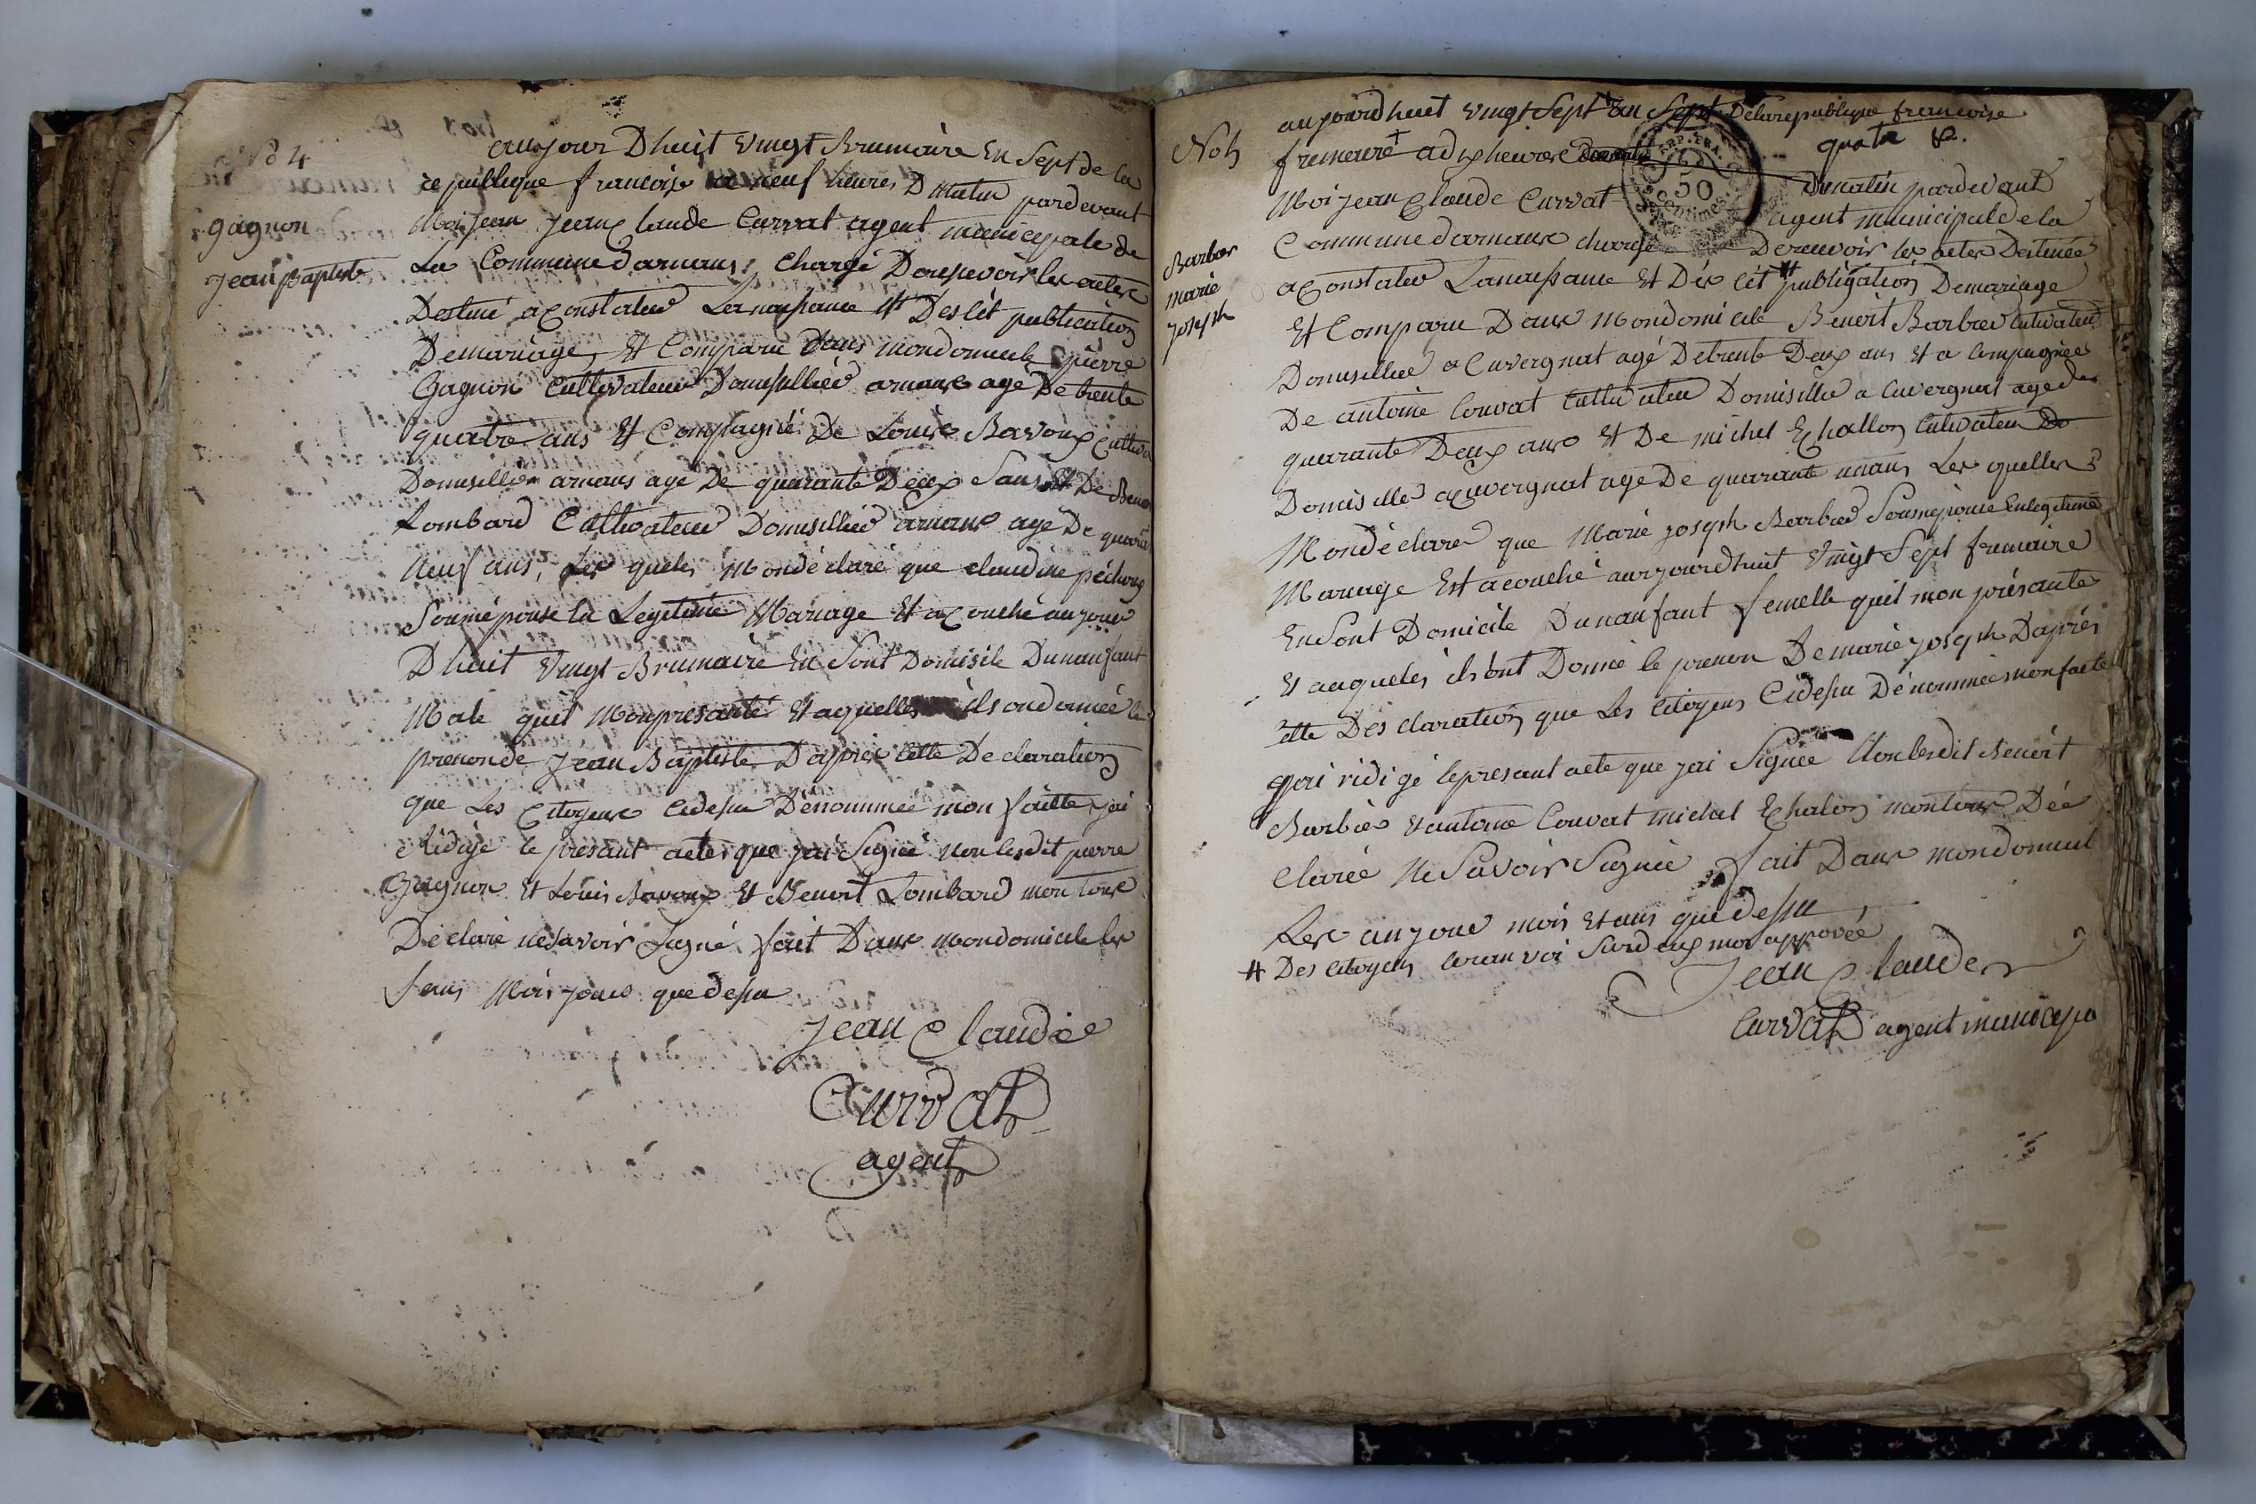 No 4
gagnon
jean Baptiste
aujour Dhuit vingt Brumaire En Sept de la
republique francoise a neuf heures D matin pardevant
Moi jean jean Claude Curvat agent municipale de
La Commune darnans, chargé Doresevoir les actes
Destiné a Constater Lanaissance Et Deslét publication
Demariage, Et Comparu Dans mondomicile pierre
Gagnon Cultivateur Domisillier arnans agé De trente
quatre ans Et Compagnié De Louis Bavoux Cultiva
Domisillier arnans age De quarante Deux Sans Et De Benoi
Lombard Cultivateur Domisillier arnans age De quara
Neuf ans, Les quels Mondéclaré que claudine
Sonnépouse En Legitime Mariage Et acouché aujour
Dhuit vingt Brumaire En Sont Domisile Dunanfant
Male quil Monpresanté Et aquelles ils ondonnée le
prenonde jean Baptiste Daprés Cette Declaration
que Les Citoyens Cidesu Dénommée mon faitte jai
Ridigé le presant acte que jai Signé nonlesdit pierre
Gagnon Et Louis Bavoux Et Benoit Lombard mon tous
Declaré nesavoir Signé fait Dans mondomicile les
Sans Mois jours que desu
jean Claude
Curvat
agent
No 5
Barbier
marie
joseph
aujourdhuit vingt Sept an Sept Delarepublique francoise
quatre
frimaire + adixheures Dumatin pardevant
Moi jean Claude Curvat agent municipal de la
Commune darnans chargé Derecevoir les actes Destinée
aConstater Lanaissance Et Dés lét # publigation Demariage
Et Comparu Dans Mondomicile Benoit Barbier Cultivateur
Domisillier a Cuvergnat agé Detrente Deux ans Et a Compagnée
De antoine Convat Cultivateur Domisillier a Cuvergnat age de
quarante Deux ans Et De michel Echallon Cultivateur Do
Domisillé aCuvergnat age De quarante unans Les quelles
Mondéclaré que Marie joseph Barbier Sonnepouse Enlegitime
Mariage Est acouché aurjourdhuit vingt Sept frimaire
En Sont Domicile Dunanfant femelle quil mon présanté
Et auqueles ils ont Donné le prenon Demarie joseph Daprés
Cette Déclaration que Les Citoyens Cidesu Dénommée monfaite
jai ridigé lepresant acte que jai Signée Nonlesdit Benoit
Barbier Et antoine Convat michel Echalon montous Dé
Clarée Ne Savoir Signée fait Dans mondomicil
Les anjour mois Et ans que desu
# Des Citoyens Sur deux mos approvée
Jean Claude
Curvat agent municipa
REP. FRA.
50
Centimes